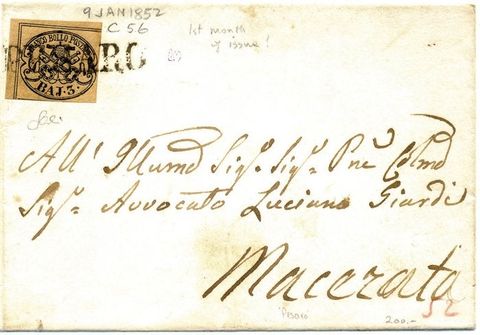 9 JAN 1852
C 56
1st month
of issue!
FRANCO BOLLO POSTALE
BAJ. 3.
PESARO
All' Illumo Sigr. Sigr. Pne Colmo
Sigr. Avvocato Luciano Giardi
Macerata
'Pesaro'
200.-
52